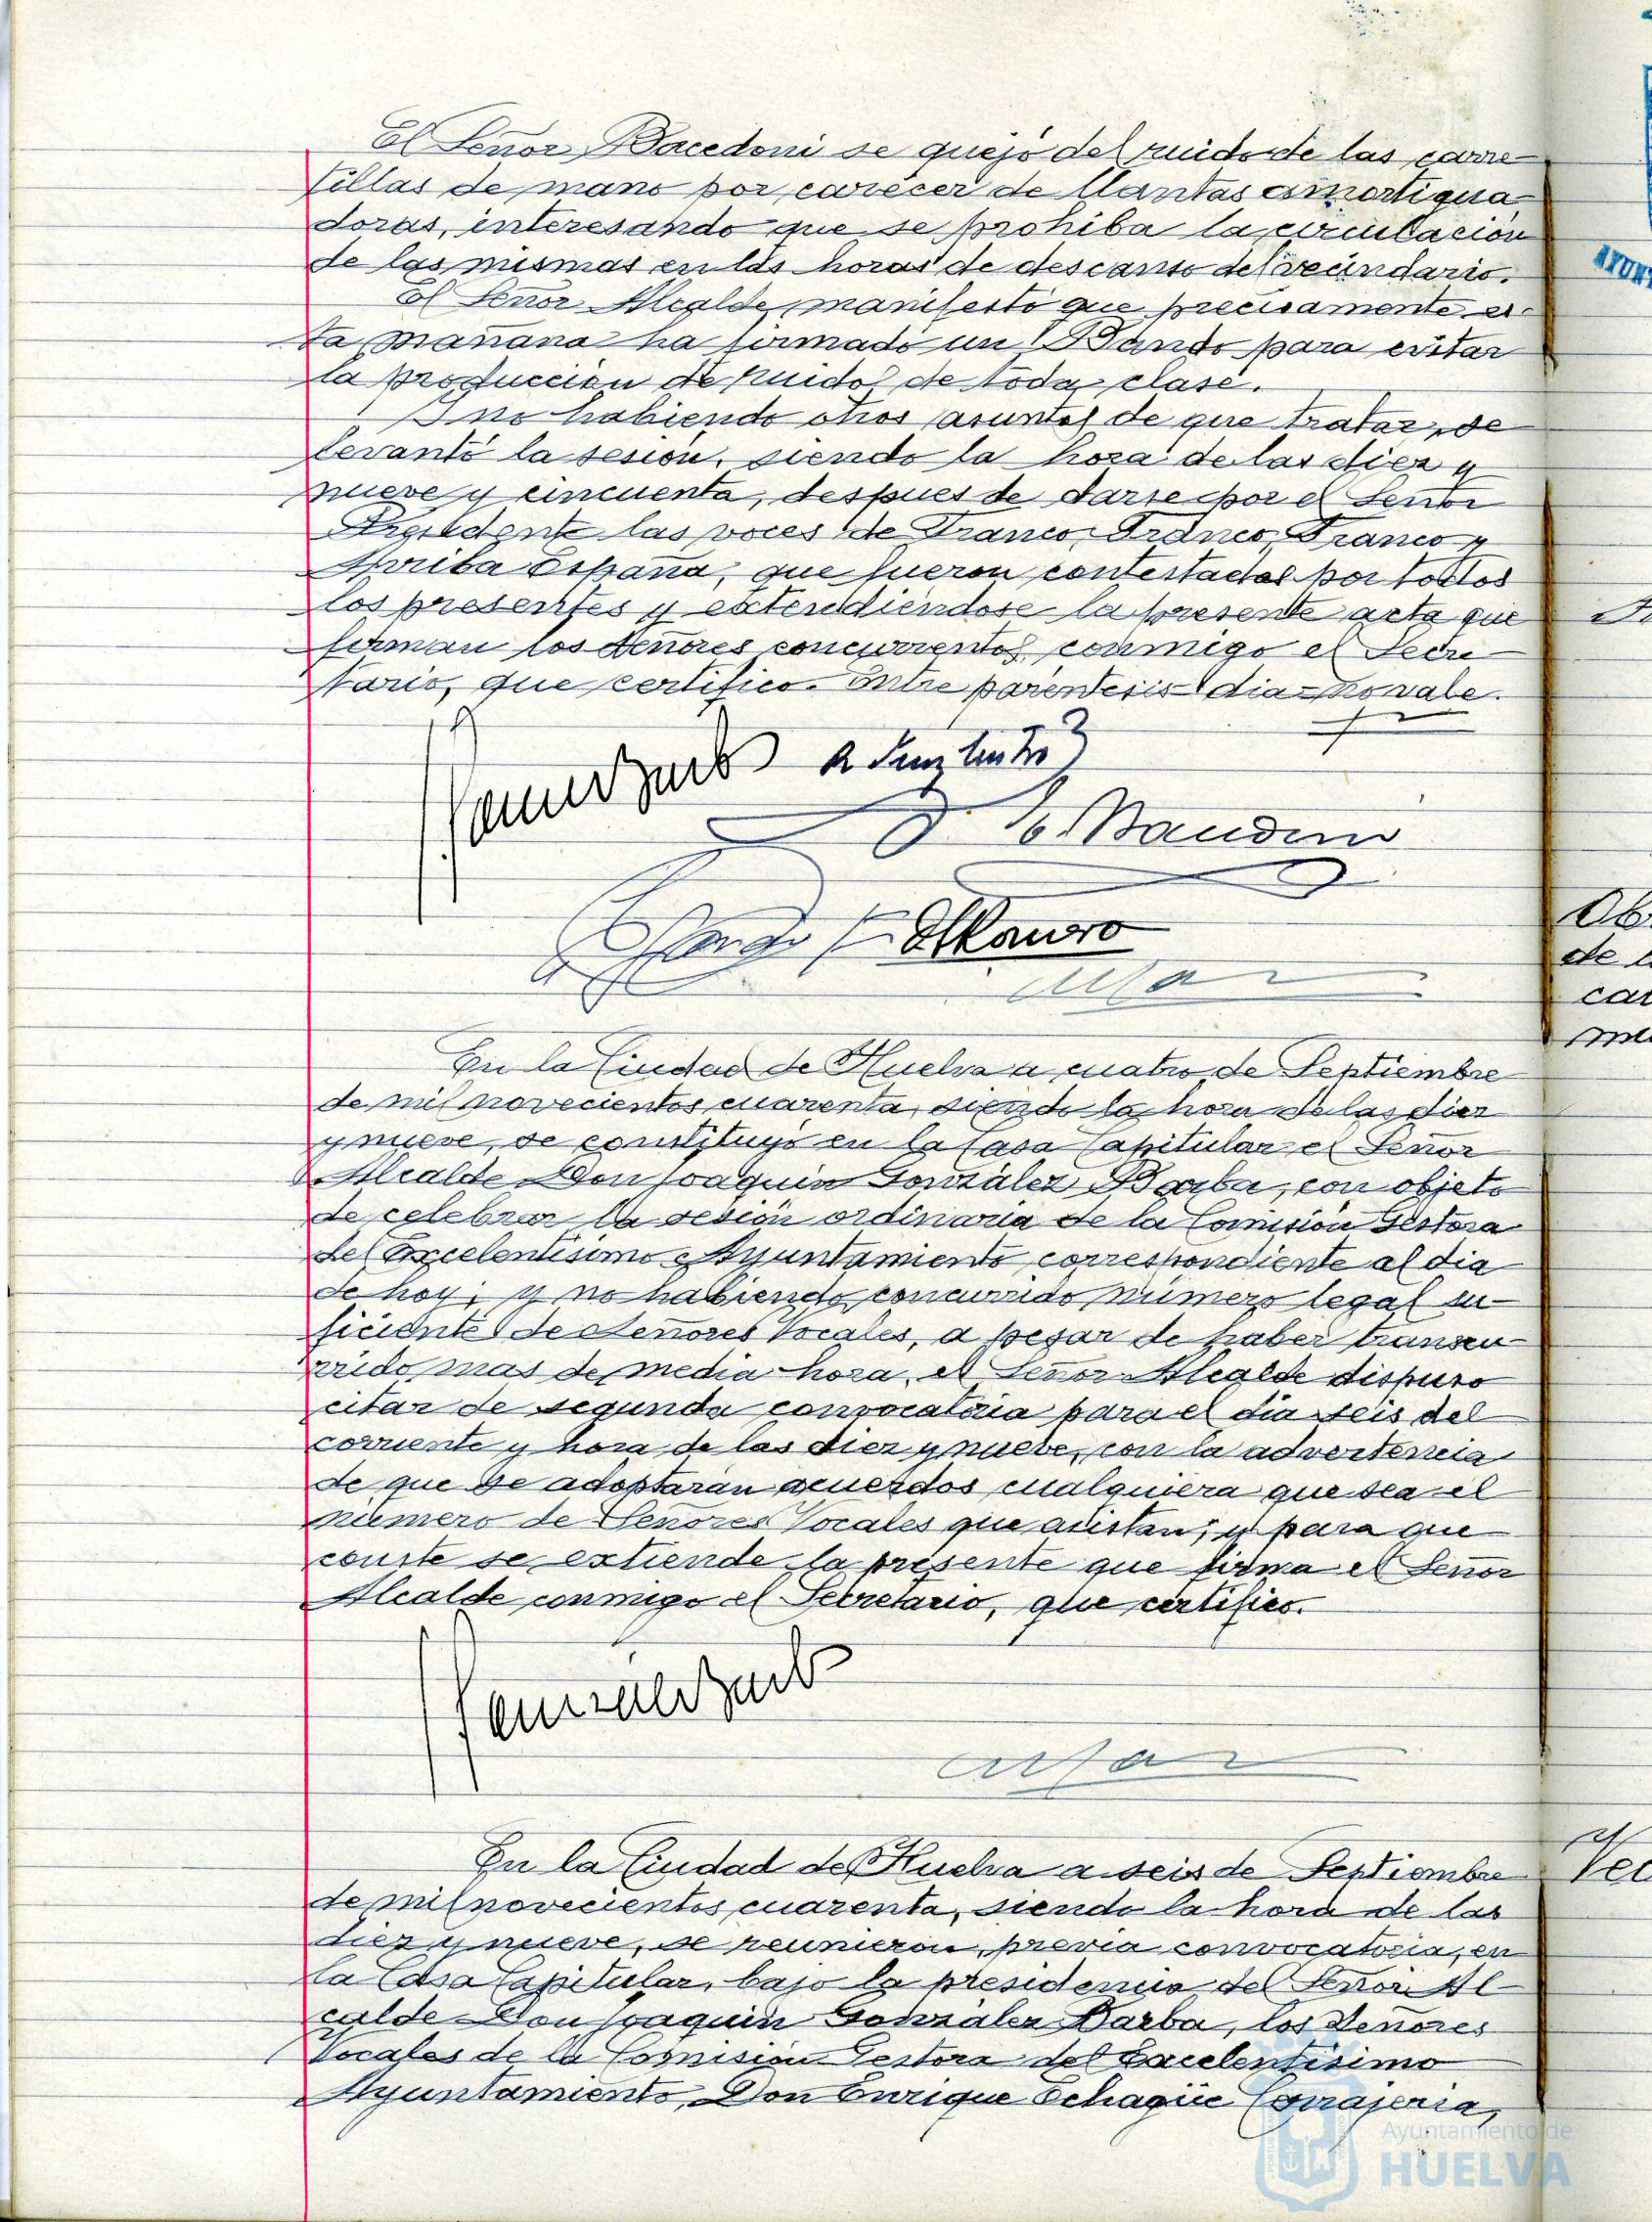 El Señor Bacedoni se quejó del ruido de las carre-
tillas de mano por carecer de llantas amortigua-
doras, interesando que se prohiba la circulación
de las mismas en las horas de descanso del vecindario.
El Señor Alcalde manifestó que precisamente es-
ta mañana ha firmado un Bando para evitar
la producción de ruidos de toda clase.
Y no habiendo otros asuntos de que tratar, se
levantó la sesión, siendo la hora de las diez y
nueve y cincuenta, despues de darse por el Señor
Presidente las voces de Franco, Franco, Franco y
Arriba España, que fueron contestadas por todos
los presentes y extendiéndose la presente acta que
firman los Señores concurrentes conmigo el Secre-
tario, que certifico. Entre paréntesis = dia = no vale.
E. Mandini
En la Ciudad de Huelva a cuatro de Septiembre
de mil novecientos cuarenta, siendo la hora de las diez
y nueve, se constituyó en la Casa Capitular el Señor
Alcalde Don Joaquin González Barba, con objeto
de celebrar la sesión ordinaria de la Comisión Gestora
del Excelentísimo Ayuntamiento correspondiente al dia
de hoy; y no habiendo concurrido número legal su-
ficiente de Señores Vocales, a pesar de haber transcu-
rrido mas de media hora, el Señor Alcalde dispuso
citar de segunda convocatoria para el dia seis del
corriente y hora de las diez y nueve, con la advertencia
de que se adoptarán acuerdos cualquiera que sea el
número de Señores Vocales que asistan; y para que
conste se extiende la presente que firma el Señor
Alcalde conmigo el Secretario, que certifico.
En la Ciudad de Huelva a seis de Septiembre
de mil novecientos cuarenta, siendo la hora de las
diez y nueve, se reunieron, previa convocatoria, en
la Casa Capitular, bajo la presidencia del Señor Al-
calde Don Joaquin González Barba, los Señores
Vocales de la Comisión Gestora del Excelentísimo
Ayuntamiento, Don Enrique Echagüe Cerrajería,
Ayuntamiento de
HUELVA